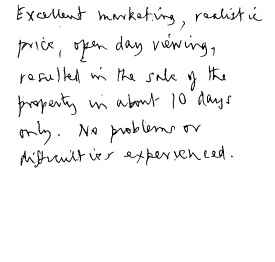 Excellent marketing, realistic
price, open day viewing,
resulted in the sale of the
property in about 10 days
only. No problems or
difficulties experienced.